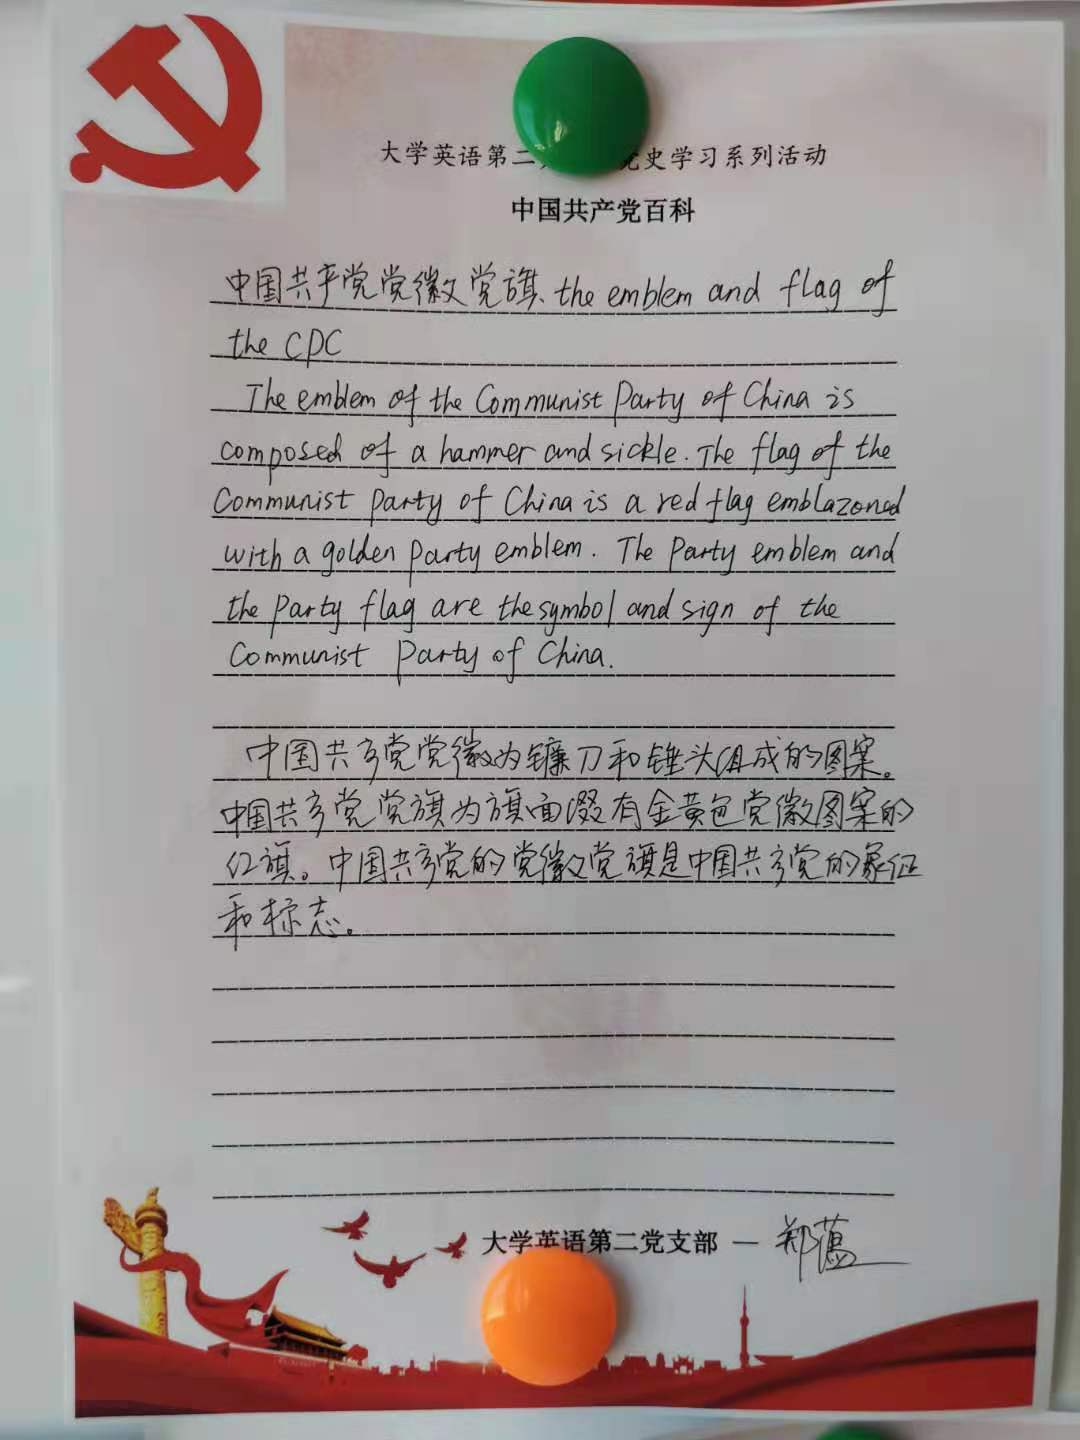 大学英语第二 史学习系列活动
中国共产党百科
中国共产党党徽党旗、the emblem and flag of
the CPC
The emblem of the Communist Party of China is
composed of a hammer and sickle. The flag of the
Communist Party of China is a red flag emblazoned
with a golden Party emblem. The Party emblem and
the Party flag are the symbol and sign of the
Communist Party of China.
中国共产党党徽为镰刀和锤头组成的图案。
中国共产党党旗为旗面缀有金黄色党徽图案的
红旗。中国共产党的党徽党旗是中国共产党的象征
和标志。
大学英语第二党支部 — 郑